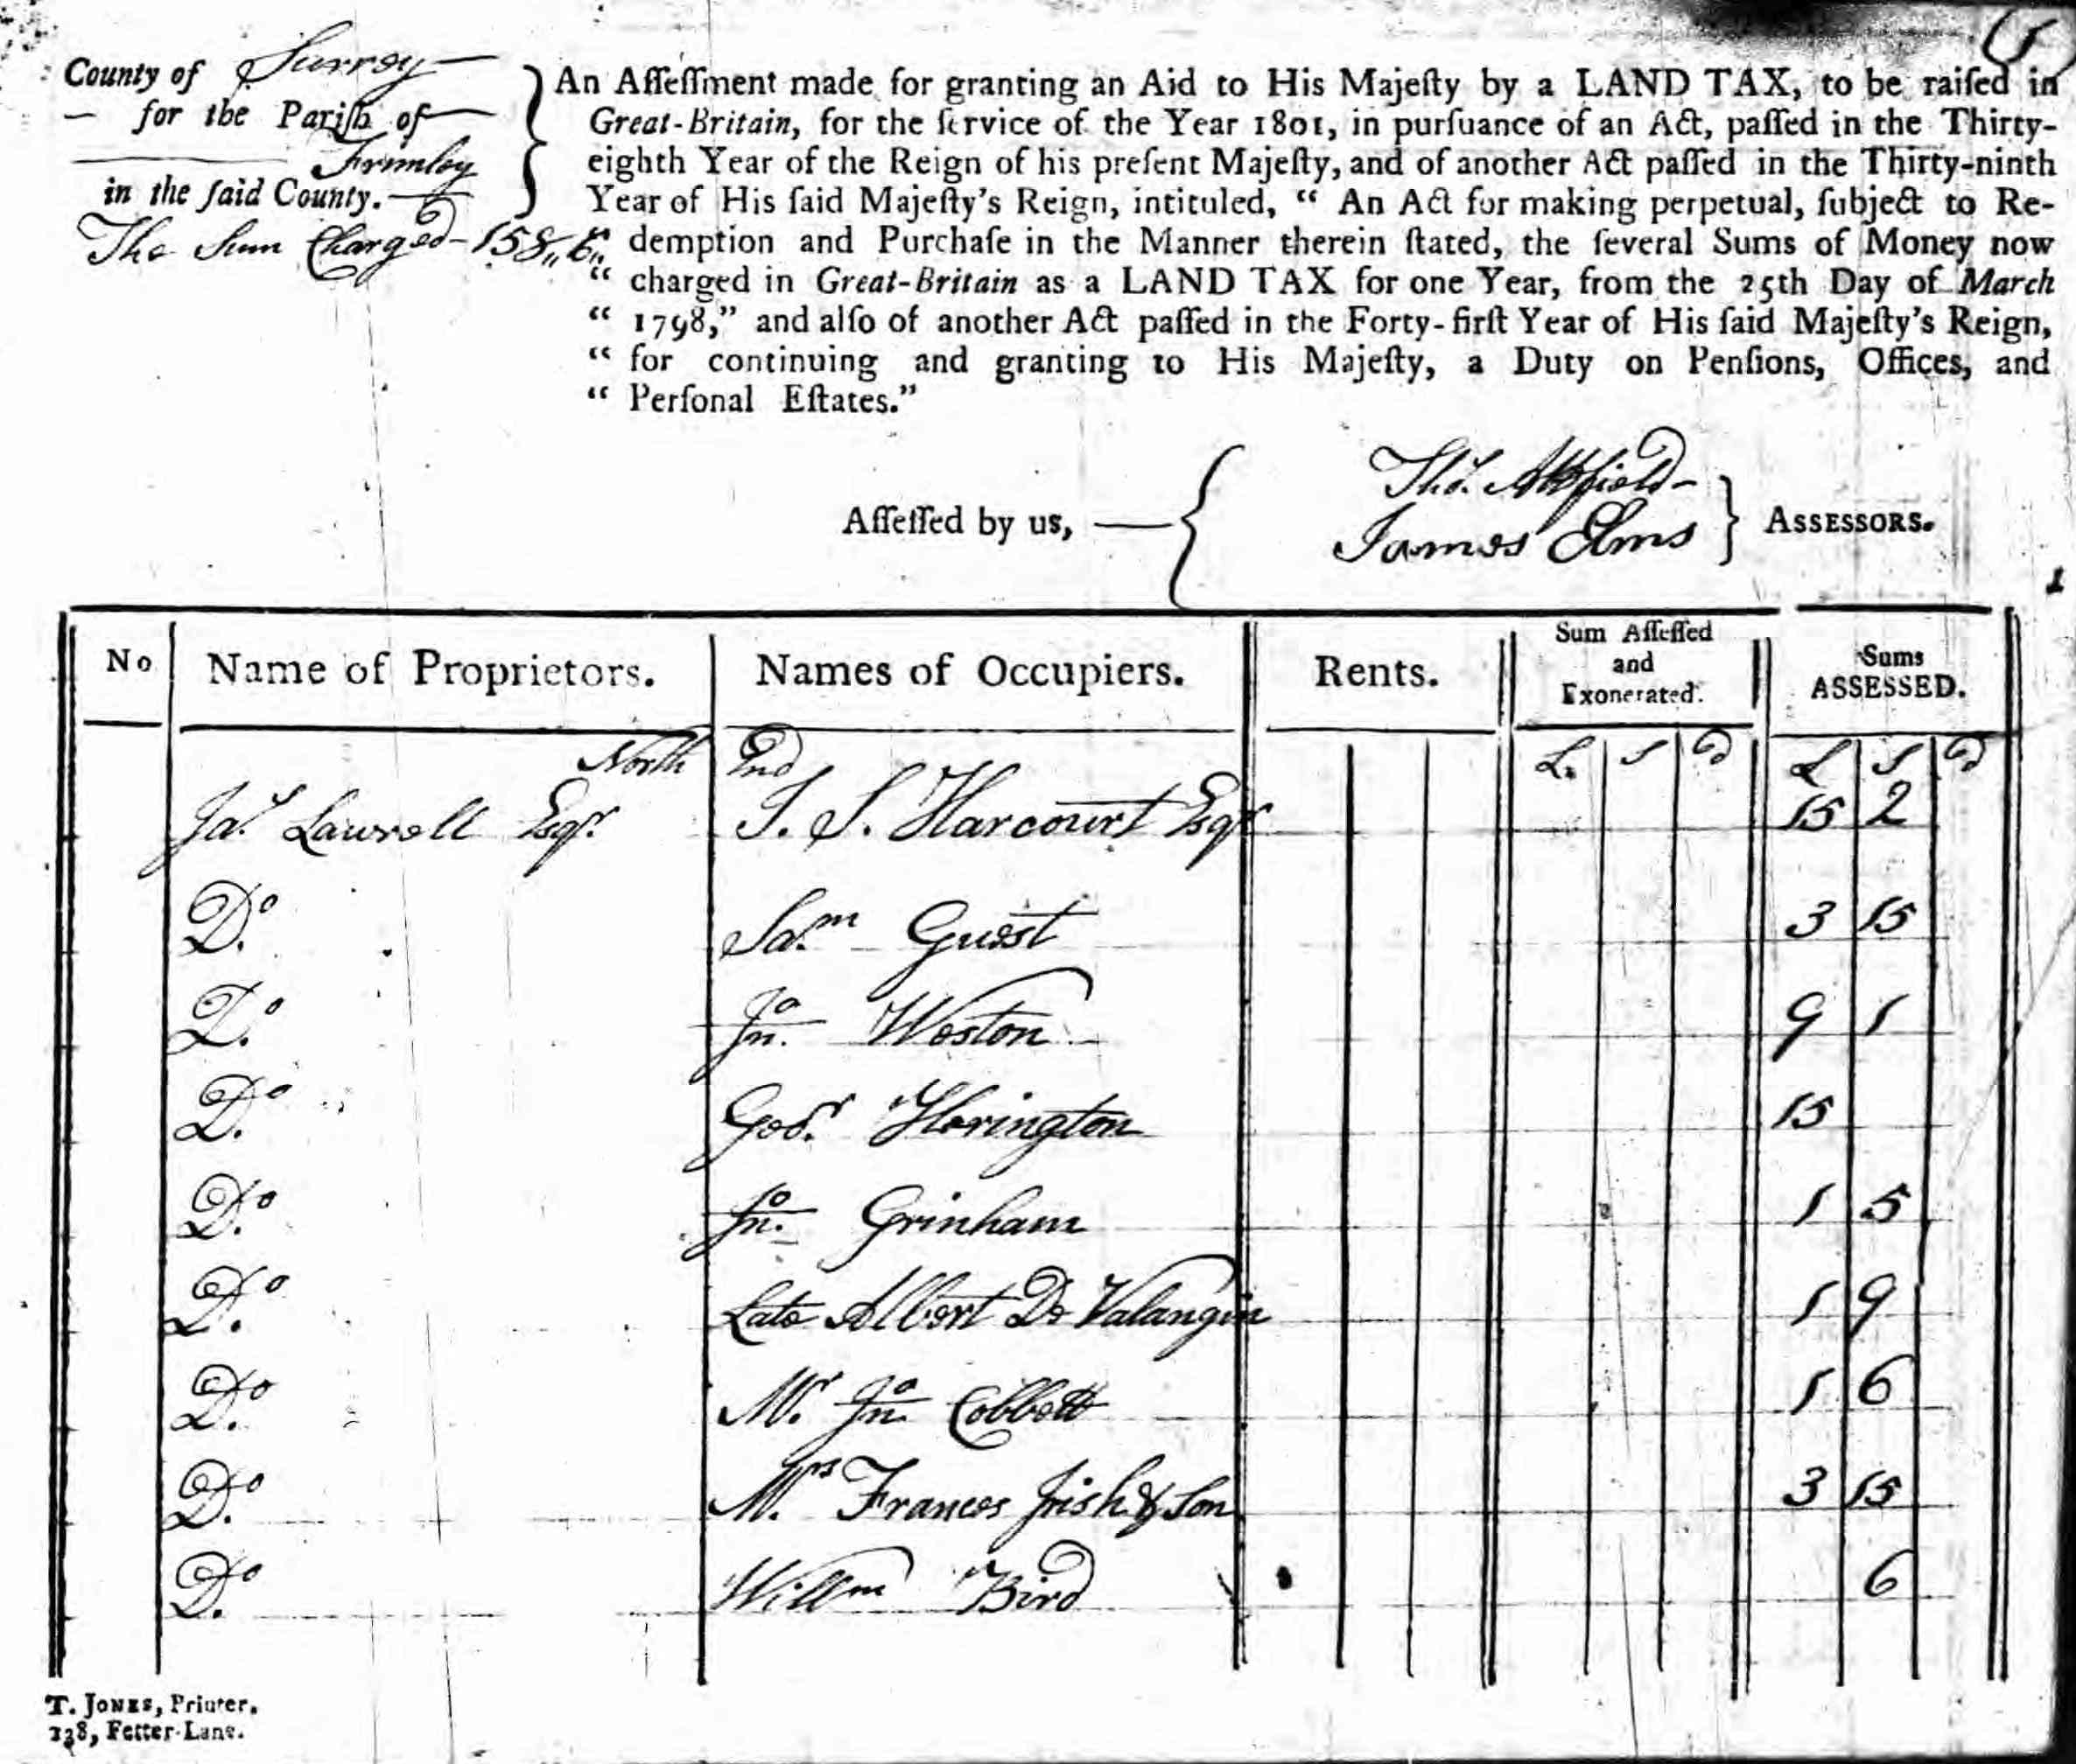 County of Surrey
— for the Pariſh of —
Frimley
in the ſaid County. —
The Sum Charged - 158,, 6,,
An Aſſeſſment made for granting an Aid to His Majeſty by a LAND TAX, to be raiſed in
Great-Britain, for the ſervice of the Year 1801, in purſuance of an Act, paſſed in the Thirty-
eighth Year of the Reign of his preſent Majeſty, and of another Act paſſed in the Thirty-ninth
Year of His ſaid Majeſty's Reign, intituled, “ An Act for making perpetual, ſubject to Re-
“ demption and Purchaſe in the Manner therein ſtated, the ſeveral Sums of Money now
“ charged in Great-Britain as a LAND TAX for one Year, from the 25th Day of March
“ 1798,” and alſo of another Act paſſed in the Forty-firſt Year of His ſaid Majeſty's Reign,
“ for continuing and granting to His Majeſty, a Duty on Penſions, Offices, and
“ Perſonal Eſtates.”
Aſſeſſed by us, — Thos. Attfield
James Elms ASSESSORS.
No Name of Proprietors. Names of Occupiers. Rents. Sum Aſſeſſed and Exonerated. Sums ASSESSED.
North End L. S D L S D
Jas. Lawrell Esqr. T. S. Harcourt Esqr 15 2
Do. Sam. Guest 3 15
Do. Jno. Weston 9 1
Do. Geor. Horington 15
Do. Jno. Grinham 1 5
Do. Late Albert De Valangin 1 9
Do. Mr. Jno. Cobbett 1 6
Do. Mrs. Frances Irish & Son 3 15
Do. Willm Bird 6
T. JONES, Printer,
138, Fetter-Lane.